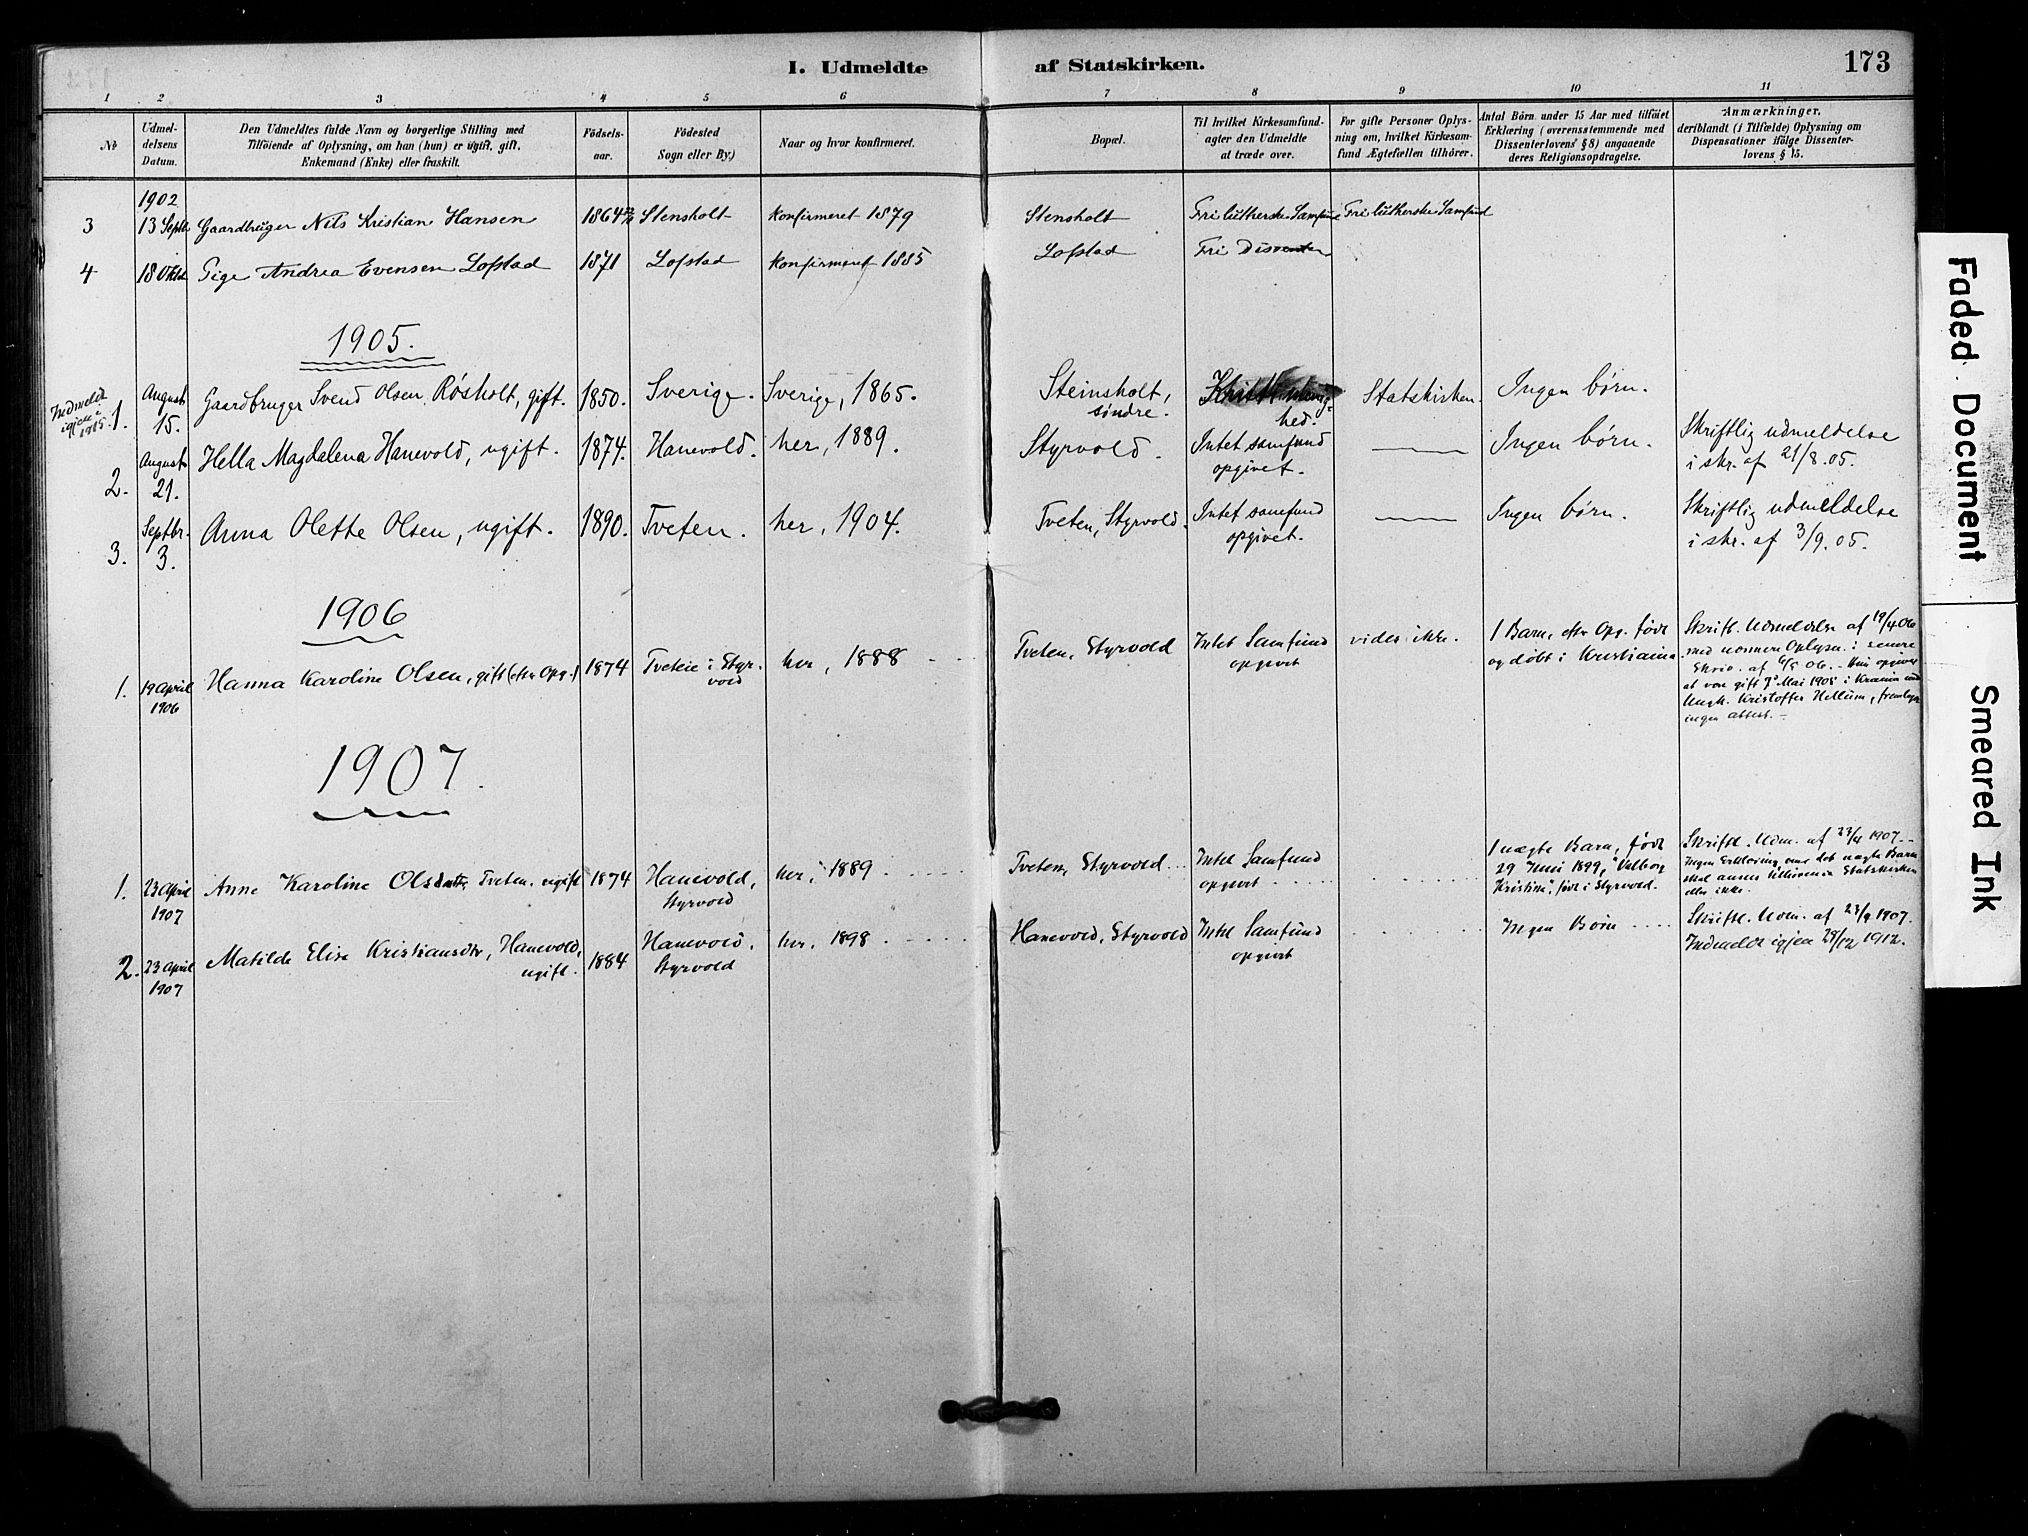 I. Udmeldte af Statskirken. 173
1 2 3 4 5 6 7 8 9 10 11
No
Udmel-
delsens
Datum.
Den Udmeldtes fulde Navn og borgerlige Stilling med
Tilföiende af Oplysning, om han (hun) er ugift, gift,
Enkemand (Enke) eller fraskilt.
Födsels-
aar.
Födested
Sogn eller By.)
Naar og hvor konfirmeret.
Bopæl.
Til hvilket Kirkesamfund-
agter den Udmeldte
at træde over.
For gifte Personer Oplys-
ning om, hvilket Kirkesam-
fund Ægtefællen tilhörer.
Antal Börn under 15 Aar med tilföiet
Erklæring (overensstemmende med
Dissenterlovens § 8) angaaende
deres Religionsopdragelse.
Anmærkninger,
deriblandt (i Tilfælde) Oplysning om
Dispensationer ifölge Dissenter-
lovens § 15.
1902
3 13 Septb Gaardbruger Nils Kristian Hansen 1864 Stensholt Konfirmeret 1879 Stensholt Fri lutherske Samfund Fri lutherske Samfund
4 18 Oktb Pige Andrea Evensen Lofstad 1871 Lofstad Konfirmeret 1885 Lofstad Fri Dissenter
1905.
Indmeldt
igjen i
1915.
1. August
15.
Gaardbruger Svend Olsen Røsholt, gift. 1850. Sverige. Sverige, 1865. Steinsholt,
søndre.
hed.
Statskirken. Ingen børn.
2. August
21.
Hella Magdalena Hanevold, ugift. 1874. Hanevold. her, 1889. Styrvold. Intet samfund
opgivet.
Ingen børn. Skriftlig udmeldelse
i skr. af 21/8. 05.
3. Septbr.
3.
Anna Olette Olsen, ugift. 1890. Tveten. her, 1904. Tveten, Styrvold. Intet samfund
opgivet.
Ingen børn. Skriftlig udmeldelse
i skr. af 3/9. 05.
1906
1. 19 April
1906
Hanna Karoline Olsen, gift (efter Opg.) 1874 Tveten i Styr-
vold
her, 1888 Tveten, Styrvold Intet Samfund
opgivet
vides ikke. 1 Barn, efter Opg. født
og døbt i Kristiania
Skriftl. Udmeldelse af 19/4 06
med nærmere Oplysn. i senere
Skriv. af 6/5 06. – Hun opgiver
at være gift 7de Mai 1905 i Krania med
Ungk. Kristoffer Hellum, fremlagt
ingen attest. –
1907.
1. 23 April
1907
Anne Karoline Olsdatter Tveten, ugift 1874 Hanevold,
Styrvold
her, 1889 Tveten, Styrvold Intet Samfund
opgivet
1 uægte Barn, født
29 Juni 1899, "Valborg
Kristine", født i Styrvold.
Skriftl. Udm. af 23/4 1907. –
Ingen Erklæring om det uægte Barn
skal ansees tilhørende Statskirken
eller ikke.
2. 23 April
1907
Matilde Elise Kristiansdtr, Hanevold,
ugift.
1884 Hanevold,
Styrvold
her, 1898 Hanevold, Styrvold Intet Samfund
opgivet
Ingen Børn Skriftl. Udm. af 23/4 1907.
Indmeldt igjen 29/12 1912.
Faded Document
Smeared Ink